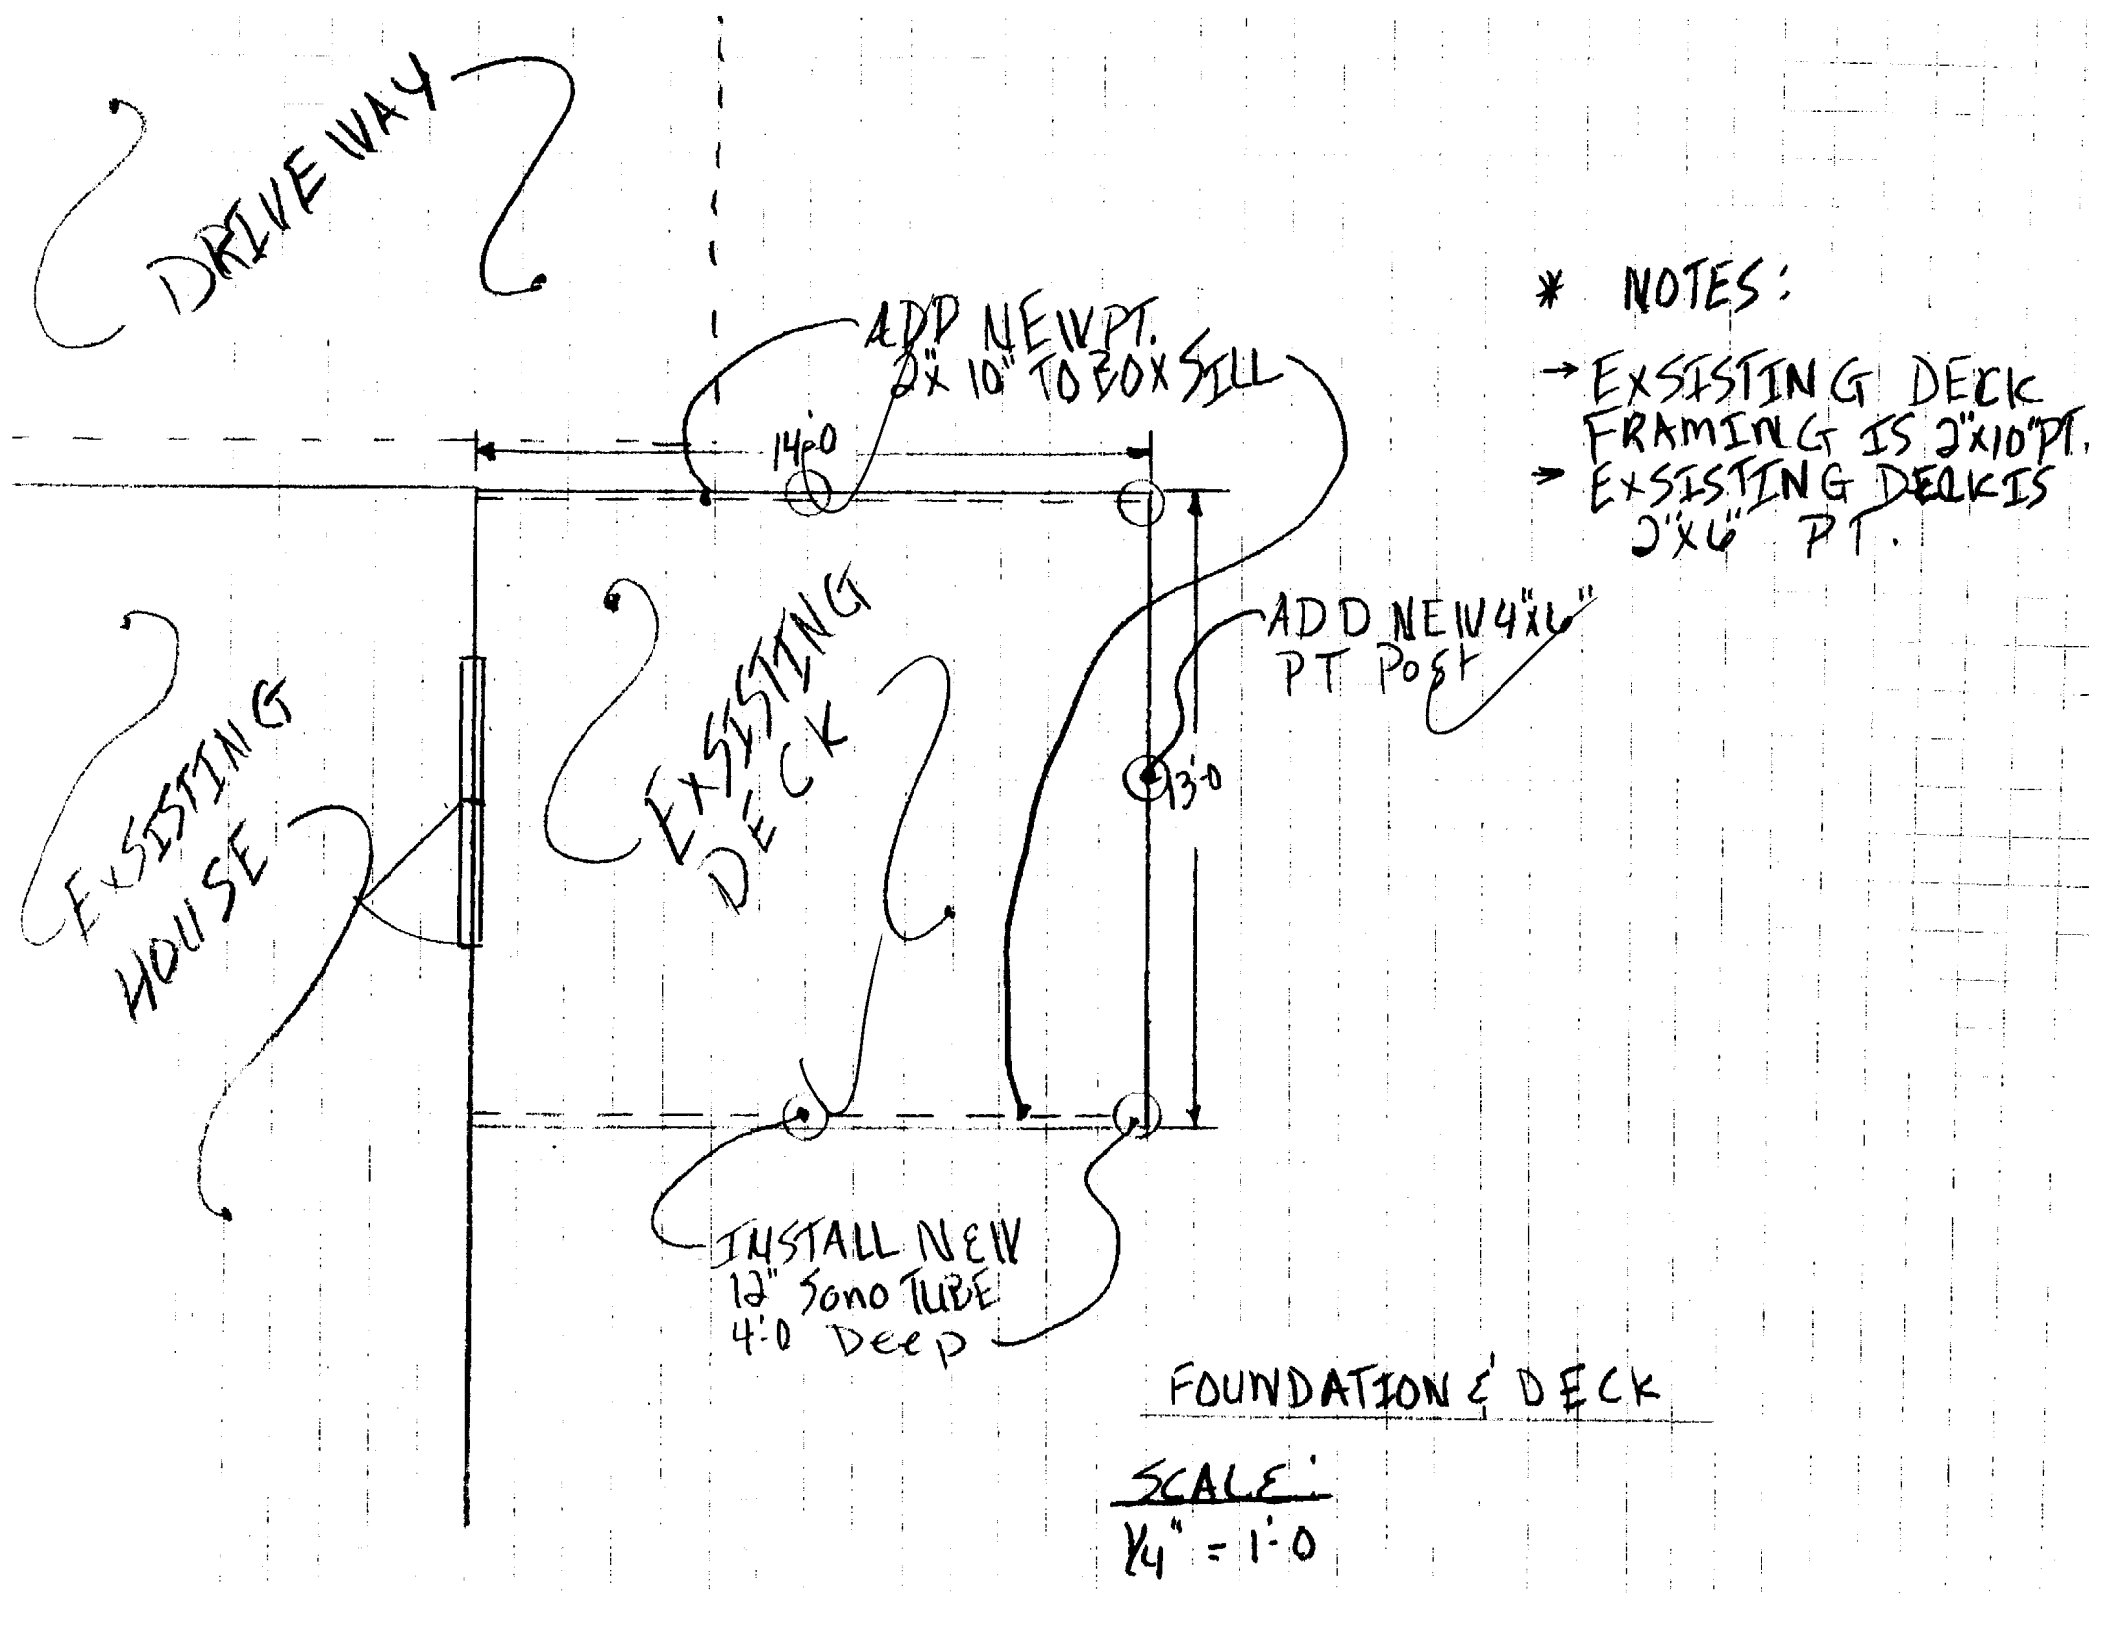 DRIVEWAY
ADD NEW PT.
2"X 10" TO BOX SILL
14'-0
* NOTES:
→ EXSISTING DECK
FRAMING IS 2"X10" PT.
→ EXSISTING DECK IS
2"X6" PT.
ADD NEW 4"X6"
PT POST
13'-0
EXSISTING
DECK
EXSISTING
HOUSE
INSTALL NEW
12" Sono TUBE
4'-0 Deep
FOUNDATION & DECK
SCALE:
1/4" = 1'-0